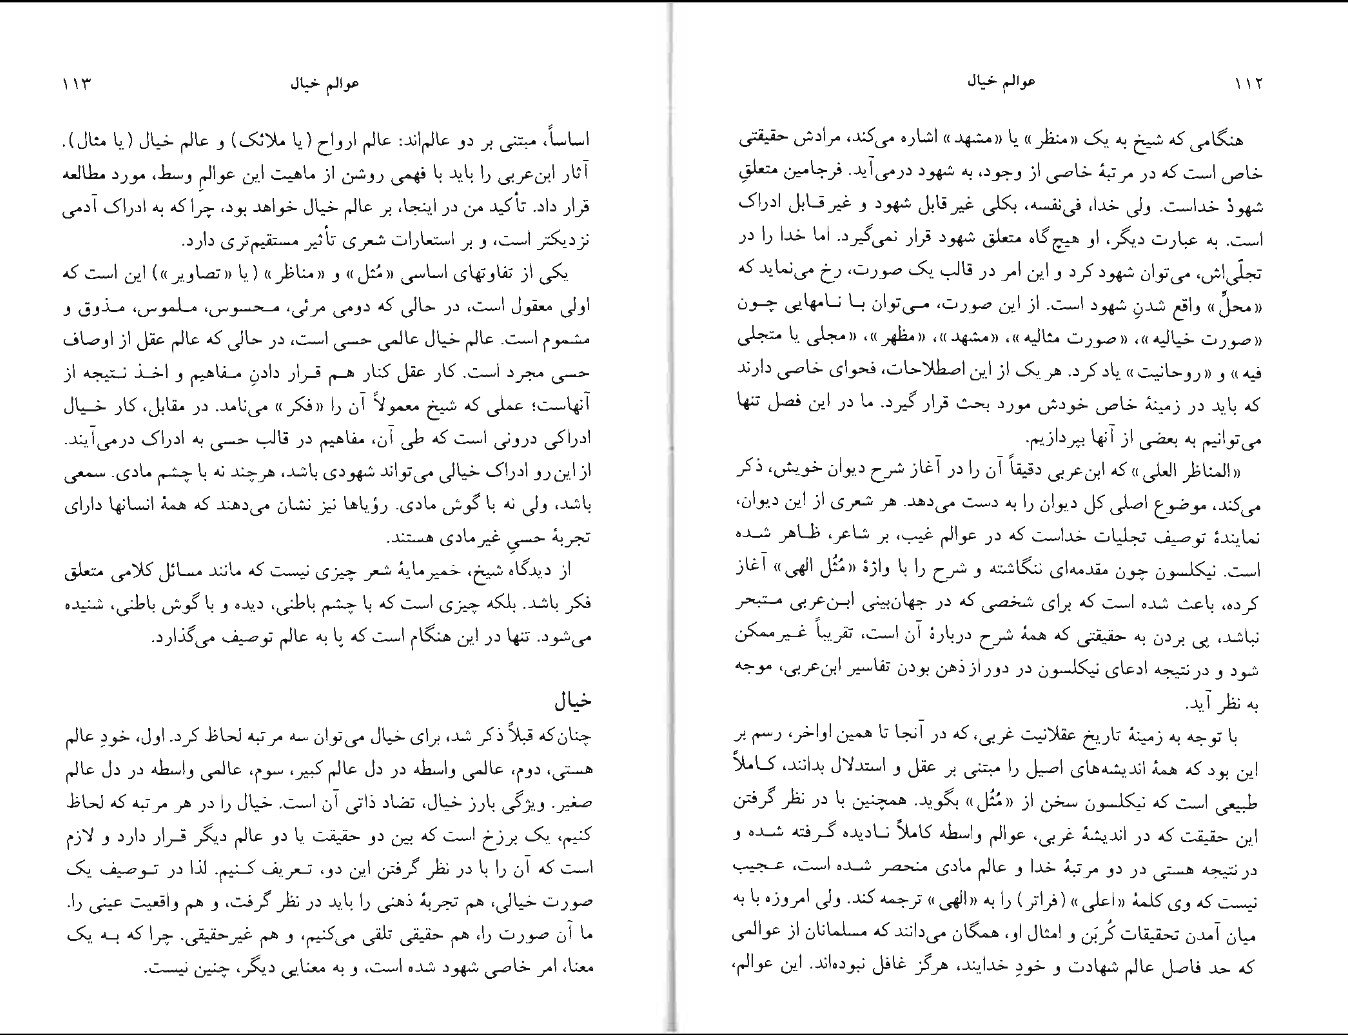 ۱۱۲
عوالم خیال
هنگامی که شیخ به یک «منظر» یا «مشهد» اشاره می‌کند، مرادش حقیقتی
خاص است که در مرتبهٔ خاصی از وجود، به شهود درمی‌آید. فرجامین متعلقِ
شهودْ خداست. ولی خدا، فی‌نفسه، بکلی غیر قابل شهود و غیر قابل ادراک
است. به عبارت دیگر، او هیچ‌گاه متعلق شهود قرار نمی‌گیرد. اما خدا را در
تجلّی‌اش، می‌توان شهود کرد و این امر در قالب یک صورت، رخ می‌نماید که
«محلِّ» واقع شدنِ شهود است. از این صورت، می‌توان با نامهایی چون
«صورت خیالیه»، «صورت مثالیه»، «مشهد»، «مظهر»، «مجلی یا متجلی
فیه» و «روحانیت» یاد کرد. هر یک از این اصطلاحات، فحوای خاصی دارند
که باید در زمینهٔ خاص خودش مورد بحث قرار گیرد. ما در این فصل تنها
می‌توانیم به بعضی از آنها بپردازیم.
«المناظر العلی» که ابن‌عربی دقیقاً آن را در آغاز شرح دیوان خویش، ذکر
می‌کند، موضوع اصلی کل دیوان را به دست می‌دهد. هر شعری از این دیوان،
نمایندهٔ توصیف تجلیات خداست که در عوالم غیب، بر شاعر، ظاهر شده
است. نیکلسون چون مقدمه‌ای ننگاشته و شرح را با واژهٔ «مُثُل الهی» آغاز
کرده، باعث شده است که برای شخصی که در جهان‌بینی ابن‌عربی متبحر
نباشد، پی بردن به حقیقتی که همهٔ شرح دربارهٔ آن است، تقریباً غیرممکن
شود و در نتیجه ادعای نیکلسون در دور از ذهن بودن تفاسیر ابن‌عربی، موجه
به نظر آید.
با توجه به زمینهٔ تاریخ عقلانیت غربی، که در آنجا تا همین اواخر، رسم بر
این بود که همهٔ اندیشه‌های اصیل را مبتنی بر عقل و استدلال بدانند، کاملاً
طبیعی است که نیکلسون سخن از «مُثُل» بگوید. همچنین با در نظر گرفتن
این حقیقت که در اندیشهٔ غربی، عوالم واسطه کاملاً نادیده گرفته شده و
در نتیجه هستی در دو مرتبهٔ خدا و عالم مادی منحصر شده است، عجیب
نیست که وی کلمهٔ «اعلی» (فراتر) را به «الهی» ترجمه کند. ولی امروزه با به
میان آمدن تحقیقات کُربَن و امثال او، همگان می‌دانند که مسلمانان از عوالمی
که حد فاصل عالم شهادت و خودِ خدایند، هرگز غافل نبوده‌اند. این عوالم،
عوالم خیال
۱۱۳
اساساً، مبتنی بر دو عالم‌اند: عالم ارواح (یا ملائک) و عالم خیال (یا مثال).
آثار ابن‌عربی را باید با فهمی روشن از ماهیت این عوالمِ وسط، مورد مطالعه
قرار داد. تأکید من در اینجا، بر عالم خیال خواهد بود، چرا که به ادراک آدمی
نزدیکتر است، و بر استعارات شعری تأثیر مستقیم‌تری دارد.
یکی از تفاوتهای اساسی «مُثل» و «مناظر» (یا «تصاویر») این است که
اولی معقول است، در حالی که دومی مرئی، محسوس، ملموس، مذوق و
مشموم است. عالم خیال عالمی حسی است، در حالی که عالم عقل از اوصاف
حسی مجرد است. کار عقل کنار هم قرار دادنِ مفاهیم و اخذ نتیجه از
آنهاست؛ عملی که شیخ معمولاً آن را «فکر» می‌نامد. در مقابل، کار خیال
ادراکی درونی است که طی آن، مفاهیم در قالب حسی به ادراک درمی‌آیند.
از این‌رو ادراک خیالی می‌تواند شهودی باشد، هرچند نه با چشم مادی. سمعی
باشد، ولی نه با گوش مادی. رؤیاها نیز نشان می‌دهند که همهٔ انسانها دارای
تجربهٔ حسیِ غیرمادی هستند.
از دیدگاه شیخ، خمیرمایهٔ شعر چیزی نیست که مانند مسائل کلامی متعلق
فکر باشد. بلکه چیزی است که با چشم باطنی، دیده و با گوش باطنی، شنیده
می‌شود. تنها در این هنگام است که پا به عالم توصیف می‌گذارد.
خیال
چنان‌که قبلاً ذکر شد، برای خیال می‌توان سه مرتبه لحاظ کرد. اول، خودِ عالم
هستی، دوم، عالمی واسطه در دل عالم کبیر، سوم، عالمی واسطه در دل عالم
صغیر. ویژگی بارز خیال، تضاد ذاتی آن است. خیال را در هر مرتبه که لحاظ
کنیم، یک برزخ است که بین دو حقیقت یا دو عالم دیگر قرار دارد و لازم
است که آن را با در نظر گرفتن این دو، تعریف کنیم. لذا در توصیف یک
صورت خیالی، هم تجربهٔ ذهنی را باید در نظر گرفت، و هم واقعیت عینی را.
ما آن صورت را، هم حقیقی تلقی می‌کنیم، و هم غیرحقیقی. چرا که به یک
معنا، امر خاصی شهود شده است، و به معنایی دیگر، چنین نیست.